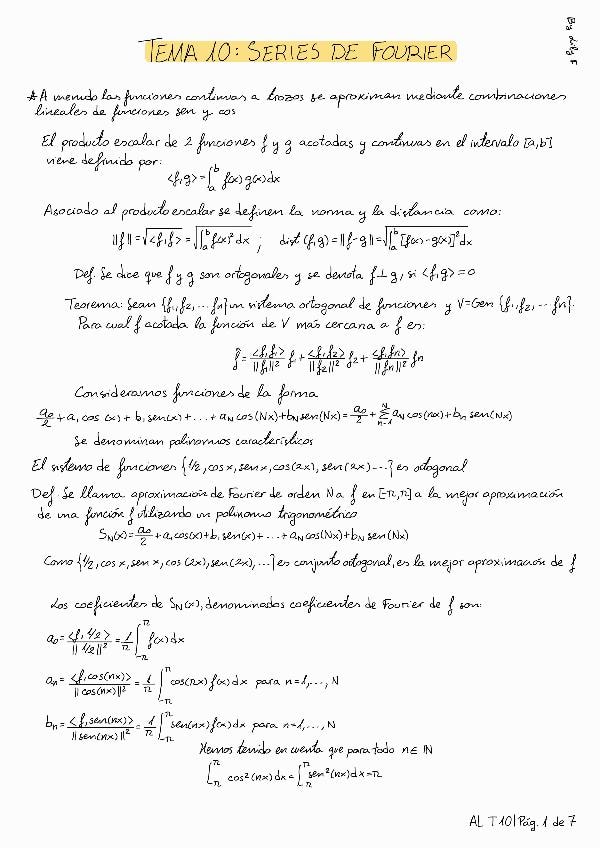 TEMA 10: SERIES DE FOURIER
*A menudo las funciones continuas a trozos se aproximan mediante combinaciones
lineales de funciones sen y cos
El producto escalar de 2 funciones f y g acotadas y continuas en el intervalo [a,b]
viene definido por:
<f,g> = ∫_a^b f(x) g(x) dx
Asociado al producto escalar se definen la norma y la distancia como:
||f|| = √<f,f> = √∫_a^b f(x)² dx ; dist (f,g) = ||f-g|| = √∫_a^b [f(x)-g(x)]² dx
Def. Se dice que f y g son ortogonales y se denota f⊥g, si <f,g> = 0
Teorema: Sean {f₁,f₂,...fn} un sistema ortogonal de funciones y V=Gen {f₁,f₂,...fn}.
Para cual f acotada la función de V más cercana a f es:
f̂ = <f,f₁>/||f₁||² f₁ + <f,f₂>/||f₂||² f₂ + <f,fn>/||fn||² fn
Consideramos funciones de la forma
a₀/2 + a₁ cos (x) + b₁ sen(x) + ... + a_N cos(Nx) + b_N sen(Nx) = a₀/2 + Σ_{n=1}^N a_N cos(nx) + b_n sen(Nx)
Se denominan polinomos característicos
El sistema de funciones {1/2, cos x, sen x, cos(2x), sen(2x)...} es ortogonal
Def. Se llama aproximación de Fourier de orden N a f en [-π,π] a la mejor aproximación
de una función f utilizando un polinomio trigonométrico
S_N(x) = a₀/2 + a₁ cos(x) + b₁ sen(x) + ... + a_N cos(Nx) + b_N sen(Nx)
Como {1/2, cos x, sen x, cos (2x), sen(2x), ...} es conjunto ortogonal, es la mejor aproximación de f
Los coeficientes de S_N(x), denominados coeficientes de Fourier de f son:
a₀ = <f, 1/2>/||1/2||² = 1/π ∫_{-π}^π f(x) dx
an = <f, cos(nx)>/||cos(nx)||² = 1/π ∫_{-π}^π cos(nx) f(x) dx para n=1,..., N
bn = <f, sen(nx)>/||sen(nx)||² = 1/π ∫_{-π}^π sen(nx) f(x) dx para n=1,..., N
Hemos tenido en cuenta que para todo n∈ℕ
∫_{-π}^π cos²(nx) dx = ∫_{-π}^π sen²(nx) dx = π
AL T10|Pág. 1 de 7